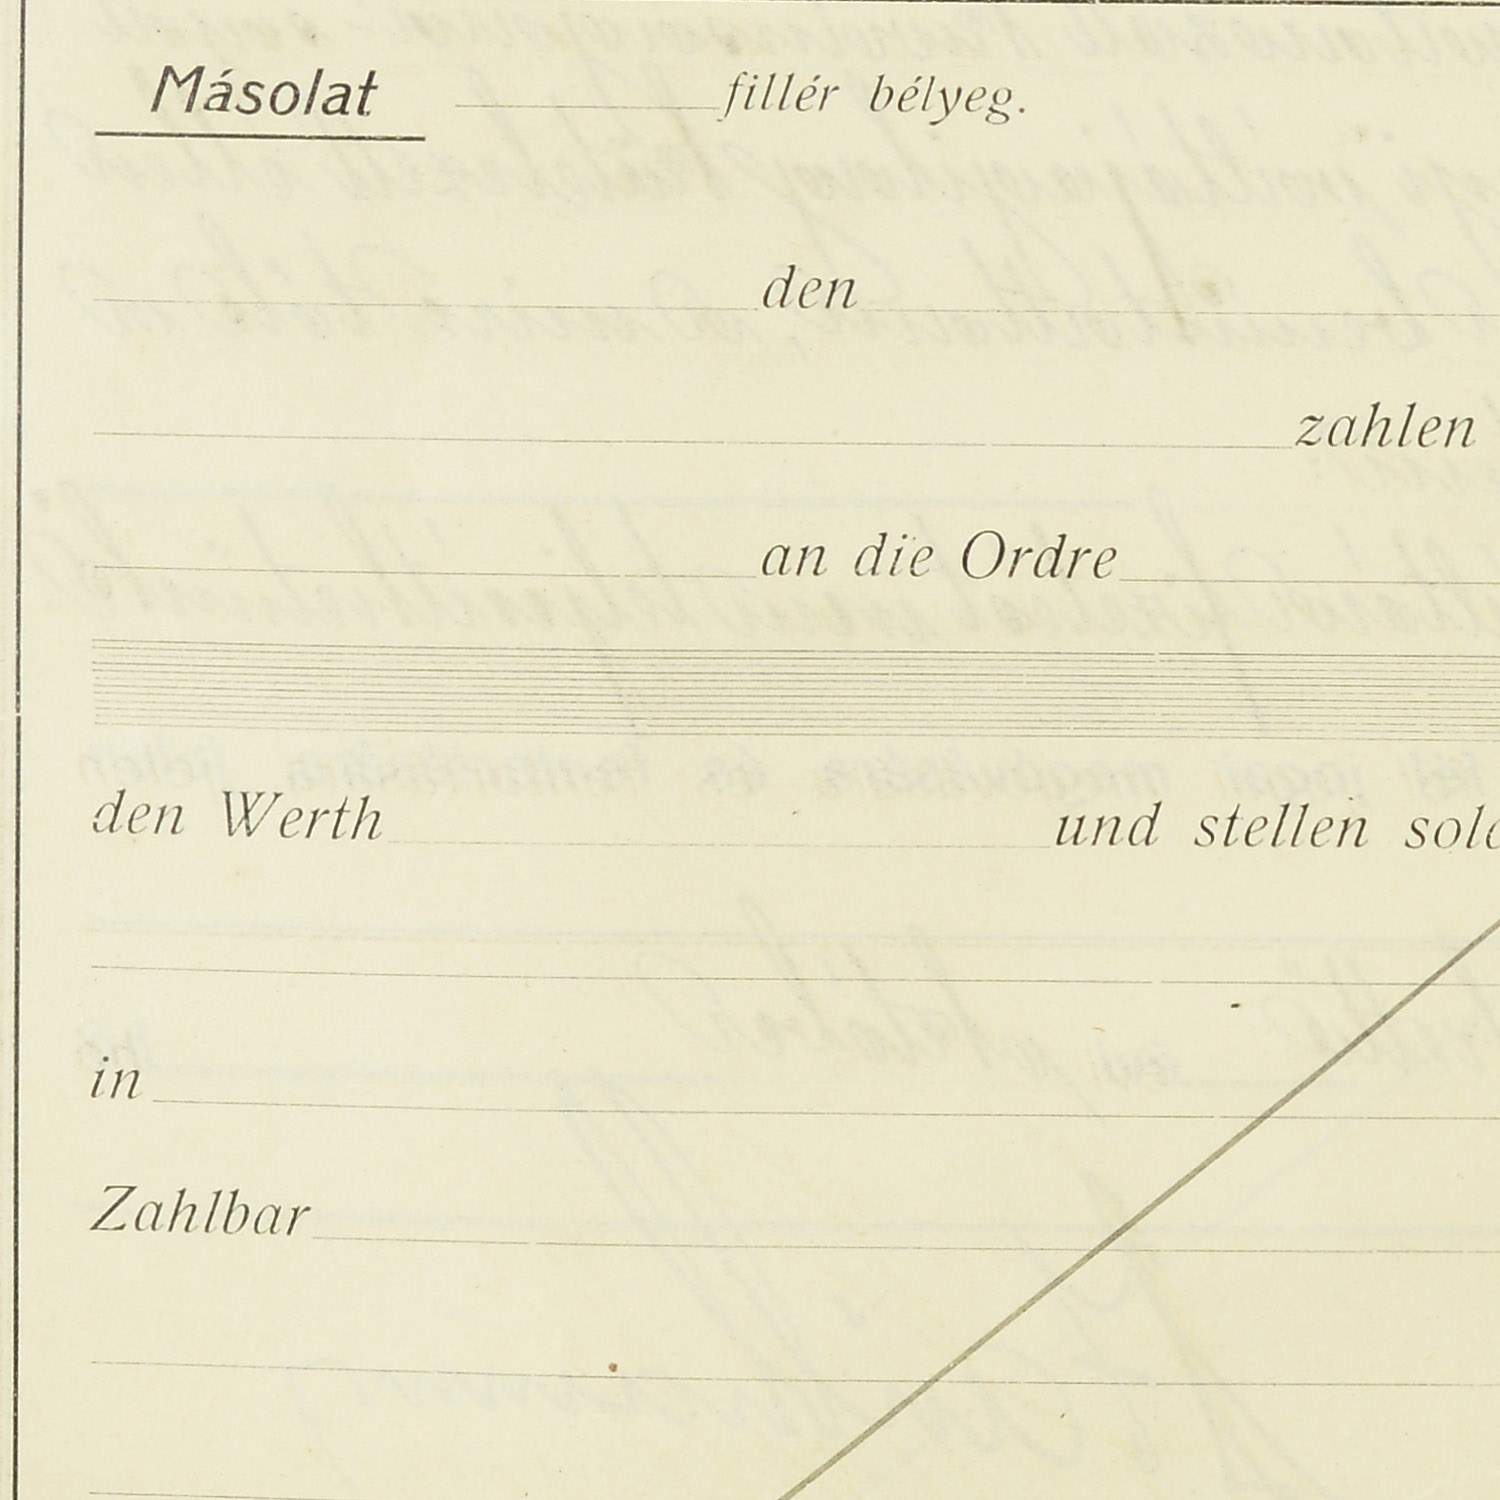 Másolat fillér bélyeg.
den
zahlen
an die Ordre
den Werth und stellen
in
Zahlbar